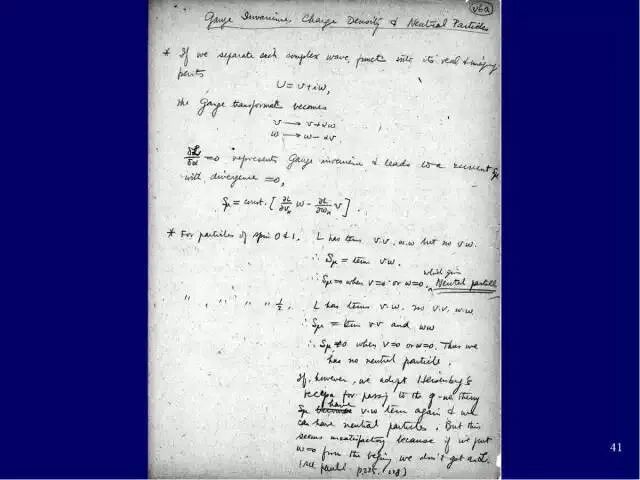 v6a
Gauge Invariance, Charge Density & Neutral Particles
* If we separate each complex wave funct into its real & imagy
parts
U = v + iw,
the Gauge transformat becomes
v → v + αw
w → w − αv.
∂L/∂α = 0 represents Gauge invariance & leads to a current Sμ
with divergence = 0,
Sμ = const. [ ∂L/∂vμ w − ∂L/∂wμ v ].
* For particles of spin 0 & 1. L has terms v.v, w.w but no v.w.
∴ Sμ = term v.w.
which give
∴ Sμ = 0 when v=0 or w=0. Neutral particles
" " " " ½. L has terms v.w. no v.v, w.w
∴ Sμ = term v.v and w.w
∴ Sμ ≠ 0 when v=0 or w=0. Thus we
has no neutral particle.
If, however, we adopt Heisenberg's
for passing to the q-no. theory
Sμ have v.w term again & we
can have neutral particles. But this
seems unsatisfactory because if we put
w=0 from the beging we don't get
(see Pauli p.225,
41